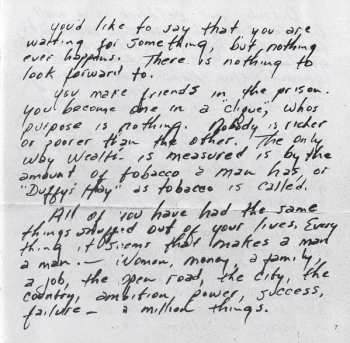 you'd like to say that you are
waiting for something, but nothing
ever happens. There is nothing to
look forward to.
you make friends in the prison.
You become one in a "clique", whos
purpose is nothing. Nobody is richer
or poorer than the other. The only
way wealth is measured is by the
amount of tobacco a man has, or
"Duffy's Hay" as tobacco is called.
All of you have had the same
things snuffed out of your lives. Every
thing it seems that makes a man
a man. — Women, money, a family,
a job, the open road, the city, the
country, ambition, power, success,
failure — a million things.